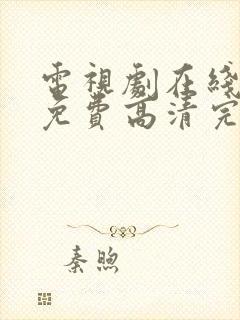 電視劇在綫
免費高清完
秦煦